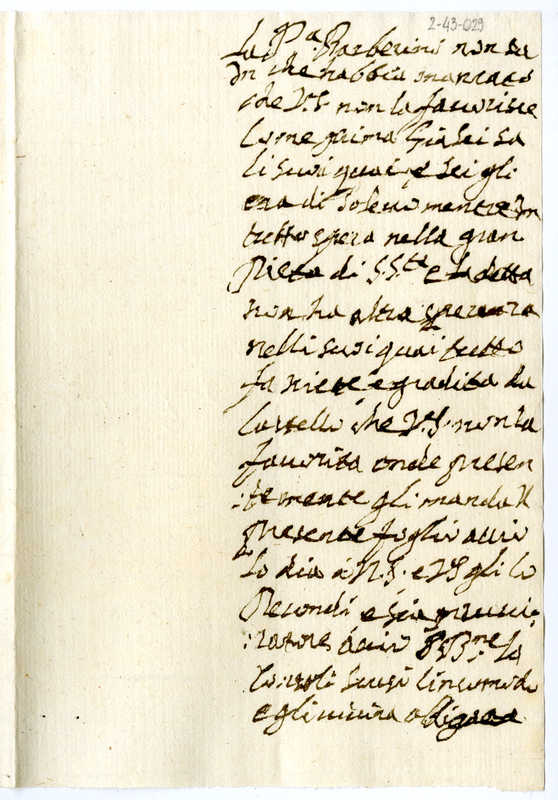 2-43-029
La Pª Barberini non sa
In che habbia mancato
che V.S. non la favorisce
Come prima Gia lei sa
li suoi guai e lei gli
era di Solevo mentre In
tutto spera nella gran
Pieta di S.Sta e la detta
non ha altra speranza
nelli suoi guai tutto
fa niete e gradita da
Castello che V.S. non la
favorita onde presen
:temente gli manda Il
Presente foglio acciò
lo dia a N.S. e VS gli lo
Recordi e sia
acciò la
Scusi lincomodo
e gli obligata